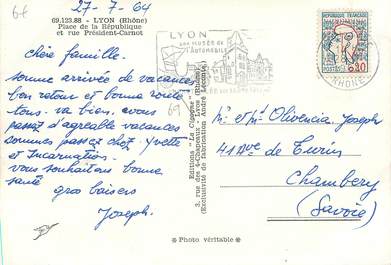 64
27-7-64
69.123.88 - LYON (Rhône)
Place de la République
et rue Président-Carnot
Chère famille.
somme arrivée de vacances
bon retour et bonne route
tous. va bien. vous
passez d'agreable vacances
sommes passez chez. Yvette
et Incarnation.
vous souhaitons bonne
santé
gros baisers
Joseph.
69
Editions "La Cigogne"
3, rue des 4-Chapeaux - Lyon (Rhône)
(Exclusivité de fabrication André Leconte)
LYON
SON MUSÉE DE
L'AUTOMOBILE
REPUBLIQUE FRANÇAISE
0,30
POSTES
RHONE
Mr et Mme Olivencia Joseph
41 Ave de Turin
Chambery
(Savoie)
* Photo véritable *